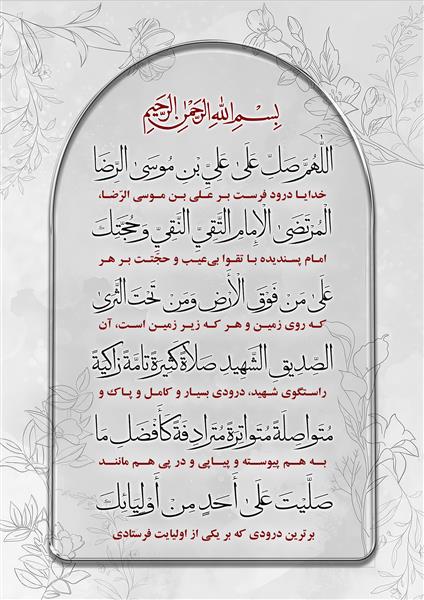 بِسْمِ اللهِ الرَّحْمٰنِ الرَّحِيمِ
اَللّٰهُمَّ صَلِّ عَلىٰ عَلِيِّ بْنِ مُوسَى الرِّضَا
خدایا درود فرست بر علی بن موسی الرّضا،
الْمُرْتَضَى الْإِمَامِ التَّقِيِّ النَّقِيِّ وَحُجَّتِكَ
امام پسندیده با تقوا بی‌عیب و حجّتت بر هر
عَلىٰ مَنْ فَوْقَ الْأَرْضِ وَمَنْ تَحْتَ الثَّرىٰ
که روی زمین و هر که زیر زمین است، آن
الصِّدِّيقِ الشَّهِيدِ صَلَاةً كَثِيرَةً تَامَّةً زَاكِيَةً
راستگوی شهید، درودی بسیار و کامل و پاک و
مُتَوَاصِلَةً مُتَوَاتِرَةً مُتَرَادِفَةً كَأَفْضَلِ مَا
به هم پیوسته و پیاپی و در پی هم مانند
صَلَّيْتَ عَلىٰ أَحَدٍ مِنْ أَوْلِيَائِكَ
برترین درودی که بر یکی از اولیایت فرستادی